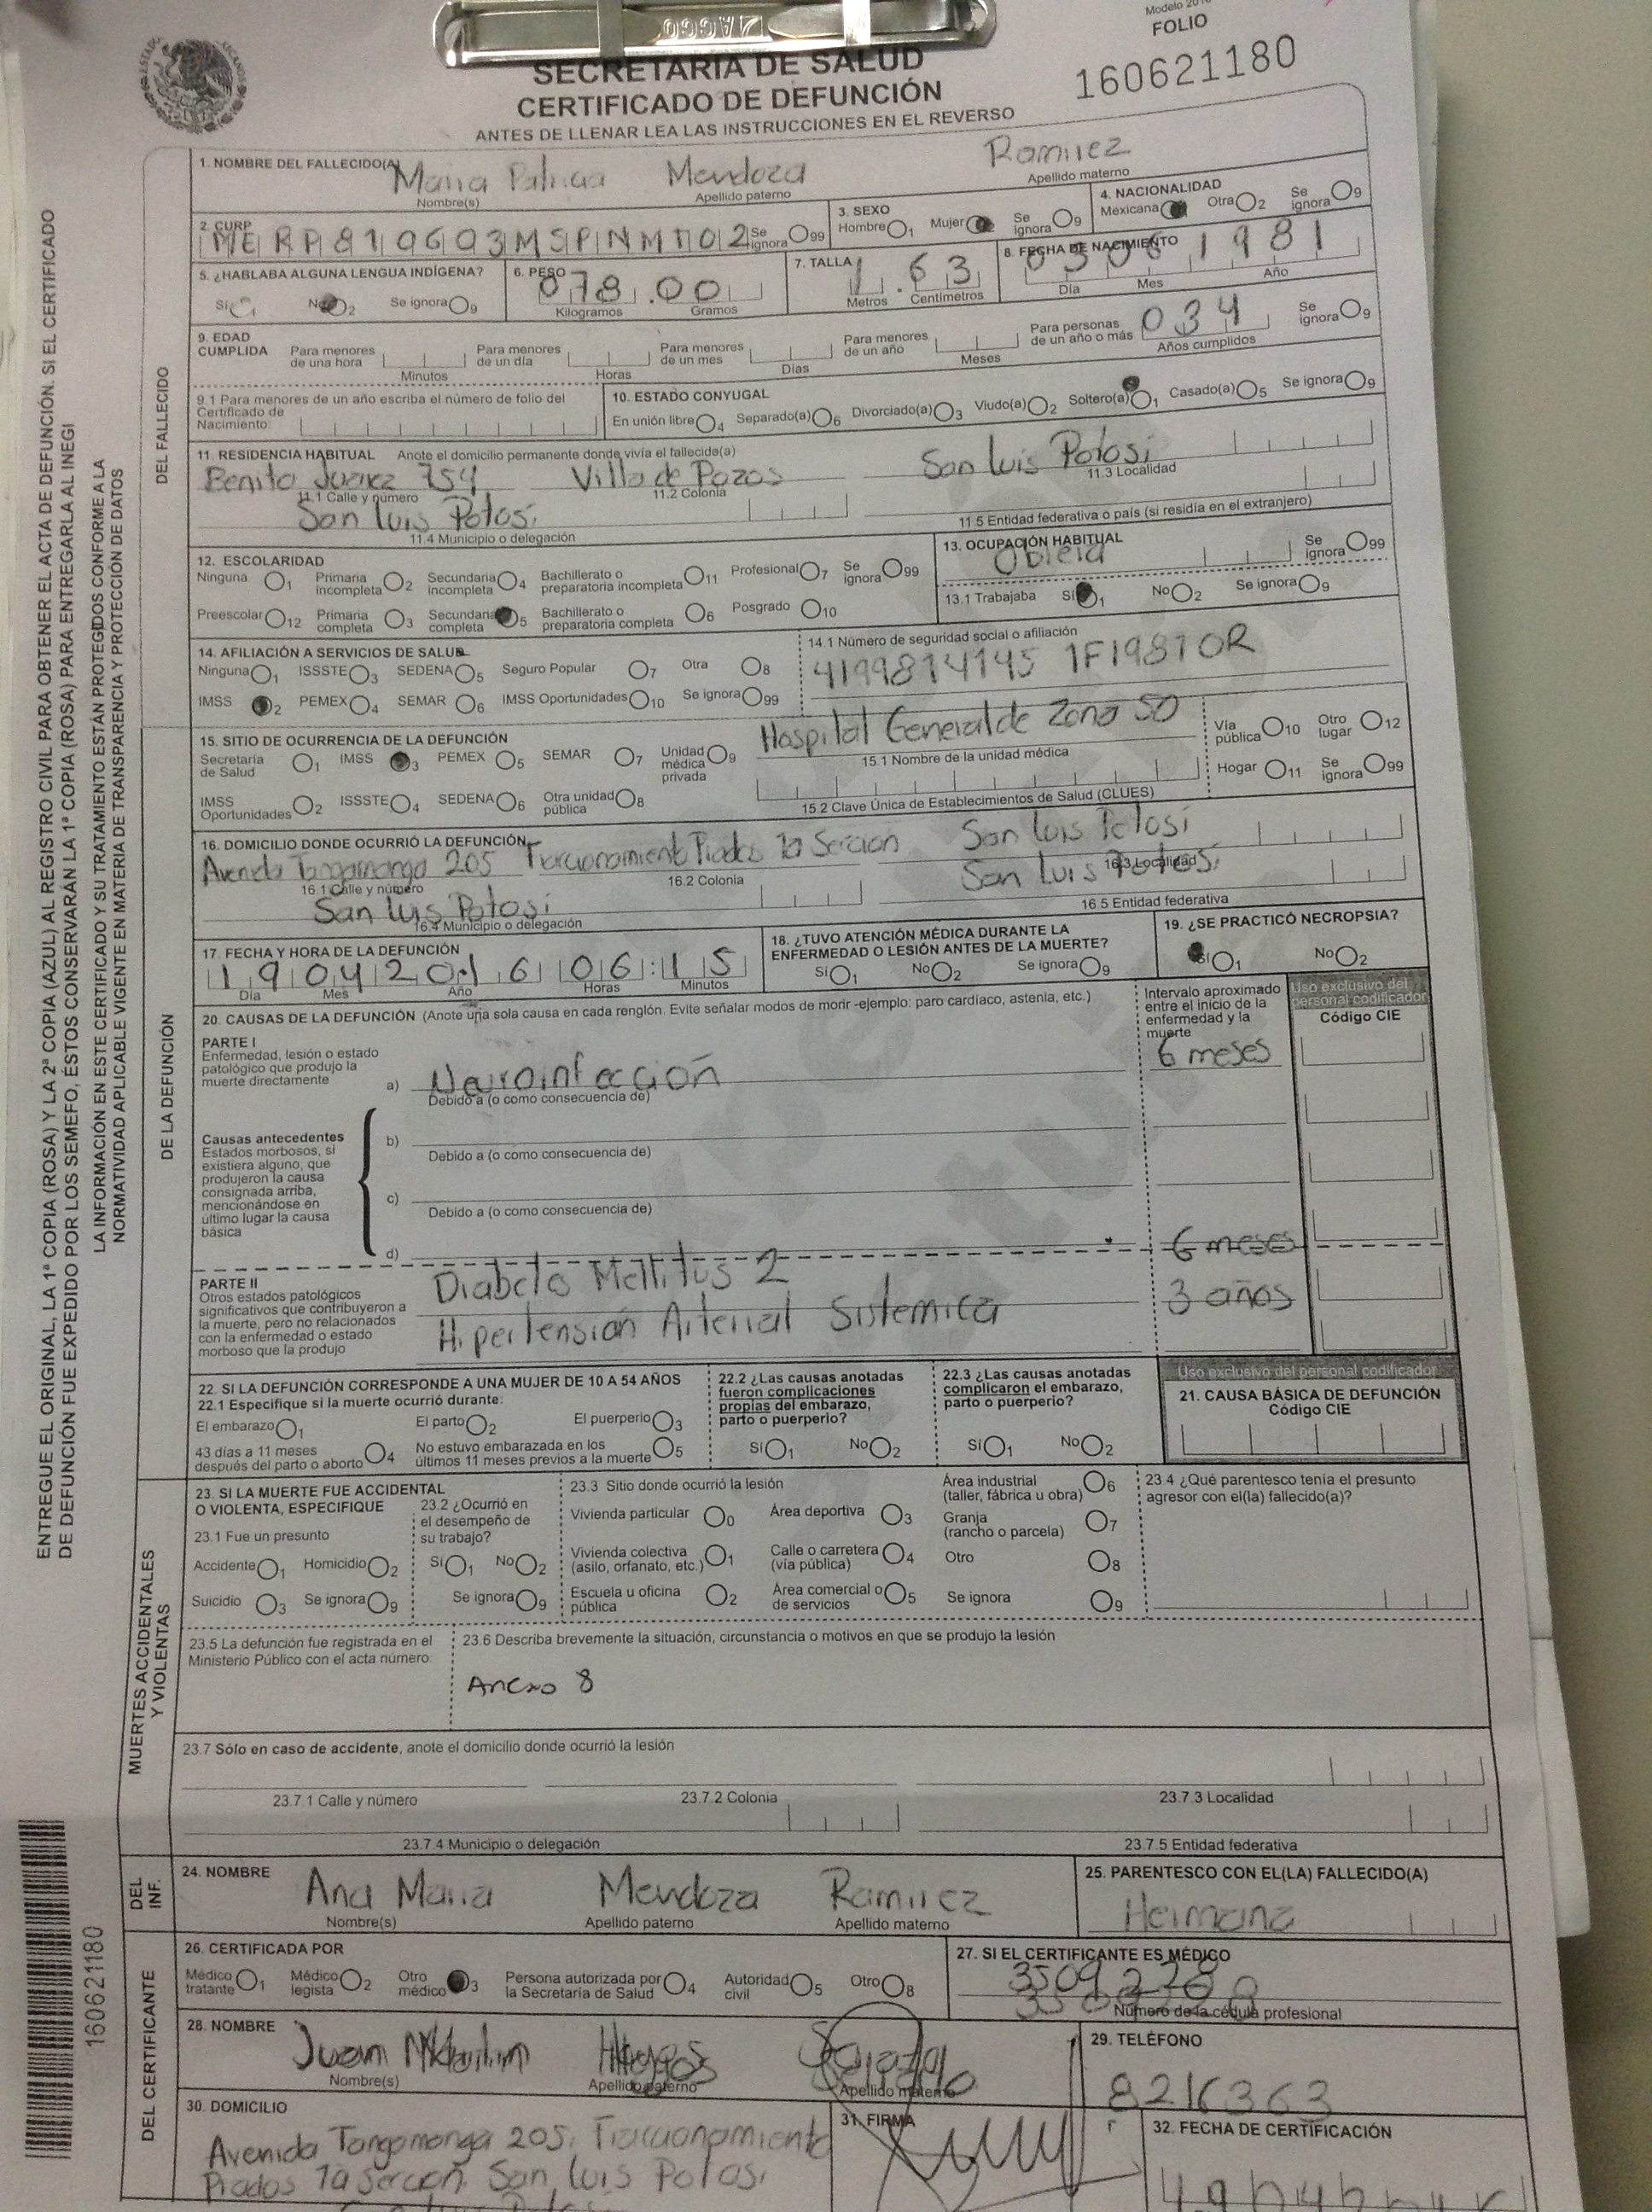 Modelo
FOLIO
160621180
SECRETARÍA DE SALUD
CERTIFICADO DE DEFUNCIÓN
ANTES DE LLENAR LEA LAS INSTRUCCIONES EN EL REVERSO
DEL FALLECIDO
1. NOMBRE DEL FALLECIDO(A) Maria Patricia Mendoza Ramirez
Nombre(s) Apellido paterno Apellido materno
2. CURP MERP810603MSPNMT02 Se ignora 99
3. SEXO Hombre 1 Mujer Se ignora 9
4. NACIONALIDAD Mexicana Otra 2 Se ignora 9
5. ¿HABLABA ALGUNA LENGUA INDÍGENA?
Sí No 2 Se ignora 9
6. PESO 078.00
Kilogramos Gramos
7. TALLA 1.63
Metros Centímetros
8. FECHA DE NACIMIENTO 1981
Día Mes Año
9. EDAD CUMPLIDA
Para menores de una hora Minutos
Para menores de un día Horas
Para menores de un mes Días
Para menores de un año Meses
Para personas de un año o más 034 Años cumplidos
Se ignora 9
9.1 Para menores de un año escriba el número de folio del Certificado de Nacimiento:
10. ESTADO CONYUGAL
En unión libre 4 Separado(a) 6 Divorciado(a) 3 Viudo(a) 2 Soltero(a) 1 Casado(a) 5 Se ignora 9
11. RESIDENCIA HABITUAL Anote el domicilio permanente donde vivía el fallecido(a)
Benito Juarez 754 Villa de Pozos San Luis Potosi
11.1 Calle y número 11.2 Colonia 11.3 Localidad
San Luis Potosi
11.4 Municipio o delegación 11.5 Entidad federativa o país (si residía en el extranjero)
12. ESCOLARIDAD
Ninguna 1 Primaria incompleta 2 Secundaria incompleta 4 Bachillerato o preparatoria incompleta 11 Profesional 7 Se ignora 99
Preescolar 12 Primaria completa 3 Secundaria completa 5 Bachillerato o preparatoria completa 6 Posgrado 10
13. OCUPACIÓN HABITUAL
Obrera Se ignora 99
13.1 Trabajaba Sí 1 No 2 Se ignora 9
14. AFILIACIÓN A SERVICIOS DE SALUD
Ninguna 1 ISSSTE 3 SEDENA 5 Seguro Popular 7 Otra 8
IMSS 2 PEMEX 4 SEMAR 6 IMSS Oportunidades 10 Se ignora 99
14.1 Número de seguridad social o afiliación
4199814145 1F1981OR
DE LA DEFUNCIÓN
15. SITIO DE OCURRENCIA DE LA DEFUNCIÓN
Secretaría de Salud 1 IMSS 3 PEMEX 5 SEMAR 7 Unidad médica privada 9
IMSS Oportunidades 2 ISSSTE 4 SEDENA 6 Otra unidad pública 8
Hospital General de Zona 50
15.1 Nombre de la unidad médica
15.2 Clave Única de Establecimientos de Salud (CLUES)
Vía pública 10 Otro lugar 12
Hogar 11 Se ignora 99
16. DOMICILIO DONDE OCURRIÓ LA DEFUNCIÓN
Avenida Tangamanga 205 Fraccionamiento Prados 1a Seccion San Luis Potosi
16.1 Calle y número 16.2 Colonia 16.3 Localidad
San Luis Potosi San Luis Potosi
16.4 Municipio o delegación 16.5 Entidad federativa
17. FECHA Y HORA DE LA DEFUNCIÓN
19 04 2016 06:15
Día Mes Año Horas Minutos
18. ¿TUVO ATENCIÓN MÉDICA DURANTE LA ENFERMEDAD O LESIÓN ANTES DE LA MUERTE?
Sí 1 No 2 Se ignora 9
19. ¿SE PRACTICÓ NECROPSIA?
Sí 1 No 2
20. CAUSAS DE LA DEFUNCIÓN (Anote una sola causa en cada renglón. Evite señalar modos de morir -ejemplo: paro cardíaco, astenia, etc.)
Intervalo aproximado entre el inicio de la enfermedad y la muerte
Uso exclusivo del personal codificador
Código CIE
PARTE I
Enfermedad, lesión o estado patológico que produjo la muerte directamente
a) Neuroinfección 6 meses
Debido a (o como consecuencia de)
Causas antecedentes
Estados morbosos, si existiera alguno, que produjeron la causa consignada arriba, mencionándose en último lugar la causa básica
b)
Debido a (o como consecuencia de)
c)
Debido a (o como consecuencia de)
d)
PARTE II
Otros estados patológicos significativos que contribuyeron a la muerte, pero no relacionados con la enfermedad o estado morboso que la produjo
Diabetes Mellitus 2 6 meses
Hipertensión Arterial Sistemica 3 años
22. SI LA DEFUNCIÓN CORRESPONDE A UNA MUJER DE 10 A 54 AÑOS
22.1 Especifique si la muerte ocurrió durante:
El embarazo 1 El parto 2 El puerperio 3
43 días a 11 meses después del parto o aborto 4 No estuvo embarazada en los últimos 11 meses previos a la muerte 5
22.2 ¿Las causas anotadas fueron complicaciones propias del embarazo, parto o puerperio?
Sí 1 No 2
22.3 ¿Las causas anotadas complicaron el embarazo, parto o puerperio?
Sí 1 No 2
Uso exclusivo del personal codificador
21. CAUSA BÁSICA DE DEFUNCIÓN
Código CIE
MUERTES ACCIDENTALES Y VIOLENTAS
23. SI LA MUERTE FUE ACCIDENTAL O VIOLENTA, ESPECIFIQUE
23.1 Fue un presunto
Accidente 1 Homicidio 2
Suicidio 3 Se ignora 9
23.2 ¿Ocurrió en el desempeño de su trabajo?
Sí 1 No 2
Se ignora 9
23.3 Sitio donde ocurrió la lesión
Vivienda particular 0 Área deportiva 3 Área industrial (taller, fábrica u obra) 6
Vivienda colectiva (asilo, orfanato, etc.) 1 Calle o carretera (vía pública) 4 Granja (rancho o parcela) 7
Escuela u oficina pública 2 Área comercial o de servicios 5 Otro 8
Se ignora 9
23.4 ¿Qué parentesco tenía el presunto agresor con el(la) fallecido(a)?
23.5 La defunción fue registrada en el Ministerio Público con el acta número:
23.6 Describa brevemente la situación, circunstancia o motivos en que se produjo la lesión
Anexo 8
23.7 Sólo en caso de accidente, anote el domicilio donde ocurrió la lesión
23.7.1 Calle y número 23.7.2 Colonia 23.7.3 Localidad
23.7.4 Municipio o delegación 23.7.5 Entidad federativa
DEL INF.
24. NOMBRE Ana Maria Mendoza Ramirez
Nombre(s) Apellido paterno Apellido materno
25. PARENTESCO CON EL(LA) FALLECIDO(A)
Hermana
DEL CERTIFICANTE
26. CERTIFICADA POR
Médico tratante 1 Médico legista 2 Otro médico 3 Persona autorizada por la Secretaría de Salud 4 Autoridad civil 5 Otro 8
27. SI EL CERTIFICANTE ES MÉDICO
Número de la cédula profesional
28. NOMBRE Juan
Nombre(s) Apellido paterno Apellido materno
29. TELÉFONO
8216363
30. DOMICILIO
Avenida Tangamanga 205, Fraccionamiento
Prados 1a Seccion San Luis Potosi
31. FIRMA
32. FECHA DE CERTIFICACIÓN
ENTREGUE EL ORIGINAL, LA 1ª COPIA (ROSA) Y LA 2ª COPIA (AZUL) AL REGISTRO CIVIL PARA OBTENER EL ACTA DE DEFUNCIÓN. SI EL CERTIFICADO
DE DEFUNCIÓN FUE EXPEDIDO POR LOS SEMEFO, ÉSTOS CONSERVARÁN LA 1ª COPIA (ROSA) PARA ENTREGARLA AL INEGI
LA INFORMACIÓN EN ESTE CERTIFICADO Y SU TRATAMIENTO ESTÁN PROTEGIDOS CONFORME A LA
NORMATIVIDAD APLICABLE VIGENTE EN MATERIA DE TRANSPARENCIA Y PROTECCIÓN DE DATOS
160621180